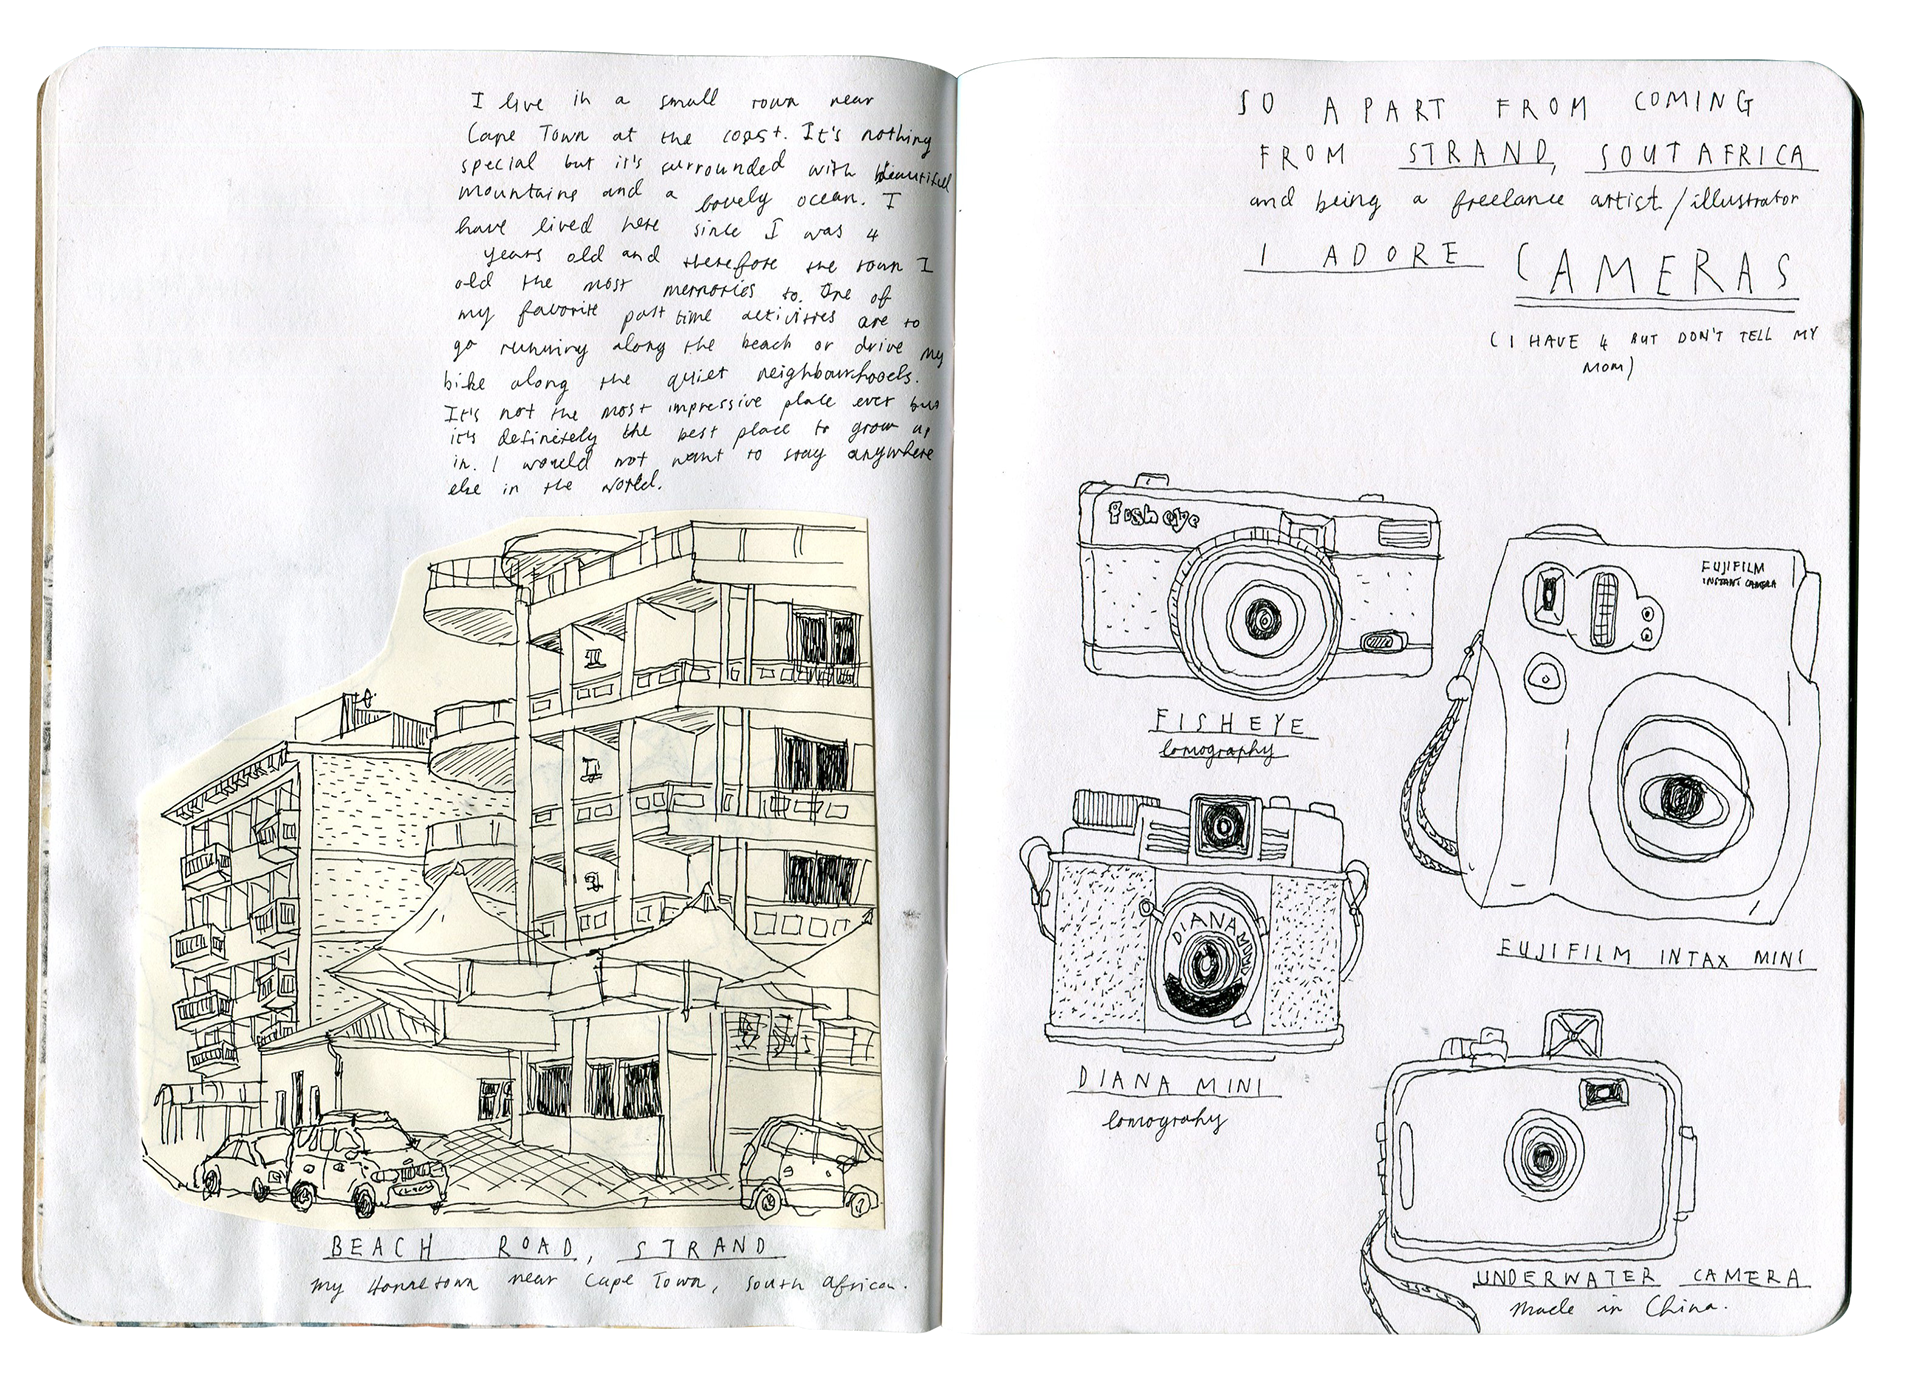 I live in a small town near
Cape Town at the coast. It's nothing
special but it's surrounded with beautiful
mountains and a lovely ocean. I
have lived here since I was 4
years old and therefore the town I
old the most memories to. One of
my favorite past time activities are to
go running along the beach or drive my
bike along the quiet neighbourhoods.
It's not the most impressive place ever but
it's definitely the best place to grow up
in. I would not want to stay anywhere
else in the world.
BEACH ROAD, STRAND
my Hometown near Cape Town, South Africa.
SO APART FROM COMING
FROM STRAND, SOUTAFRICA
and being a freelance artist/illustrator
I ADORE CAMERAS
(I HAVE 4 BUT DON'T TELL MY
MOM)
fish eye
FISHEYE
lomography
FUJIFILM
INSTANT CAMERA
FUJIFILM INTAX MINI
DIANA MINI
DIANA MINI
lomography
UNDERWATER CAMERA
Made in China.